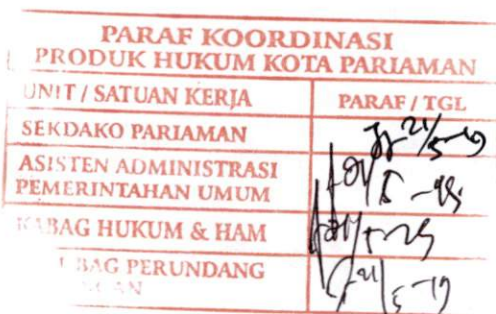 PARAF KOORDINASI
PRODUK HUKUM KOTA PARIAMAN
UNIT / SATUAN KERJA PARAF / TGL
SEKDAKO PARIAMAN 21/5-19
ASISTEN ADMINISTRASI
PEMERINTAHAN UMUM
KABAG HUKUM & HAM
BAG PERUNDANG
21/5-19